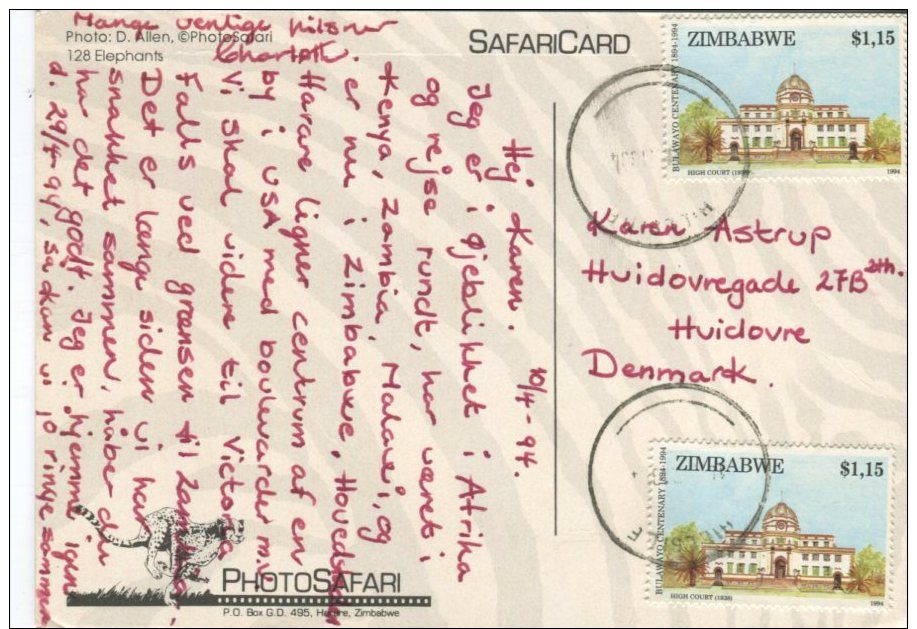 Photo: D. Allen, ©PhotoSafari
128 Elephants
SAFARICARD
10/4-94.
Hej Karen.
Jeg er i øjeblikket i Afrika
og rejse rundt, har været i
Kenya, Zambia, Malawi, og
er nu i Zimbabwe, Hovedstaden
Harare ligner centrum af en
by i USA med boulevarder m.v.
Vi skal videre til Victoria
Falls ved grænsen til Zambia.
Det er længe siden vi har
snakket sammen, håber du
har det godt. Jeg er hjemme igen
d. 29/4-94, så kan vi jo ringe sammen
Mange venlige hilsner
Charlott.
PHOTOSAFARI
P.O. Box G.D. 495, Harare, Zimbabwe
ZIMBABWE $1,15
BULAWAYO CENTENARY 1894-1994
HIGH COURT (1938)
1994
Karen Astrup
Huidovregade 27B 2th.
Huidovre
Denmark.
ZIMBABWE $1,15
BULAWAYO CENTENARY 1894-1994
HIGH COURT (1938)
1994